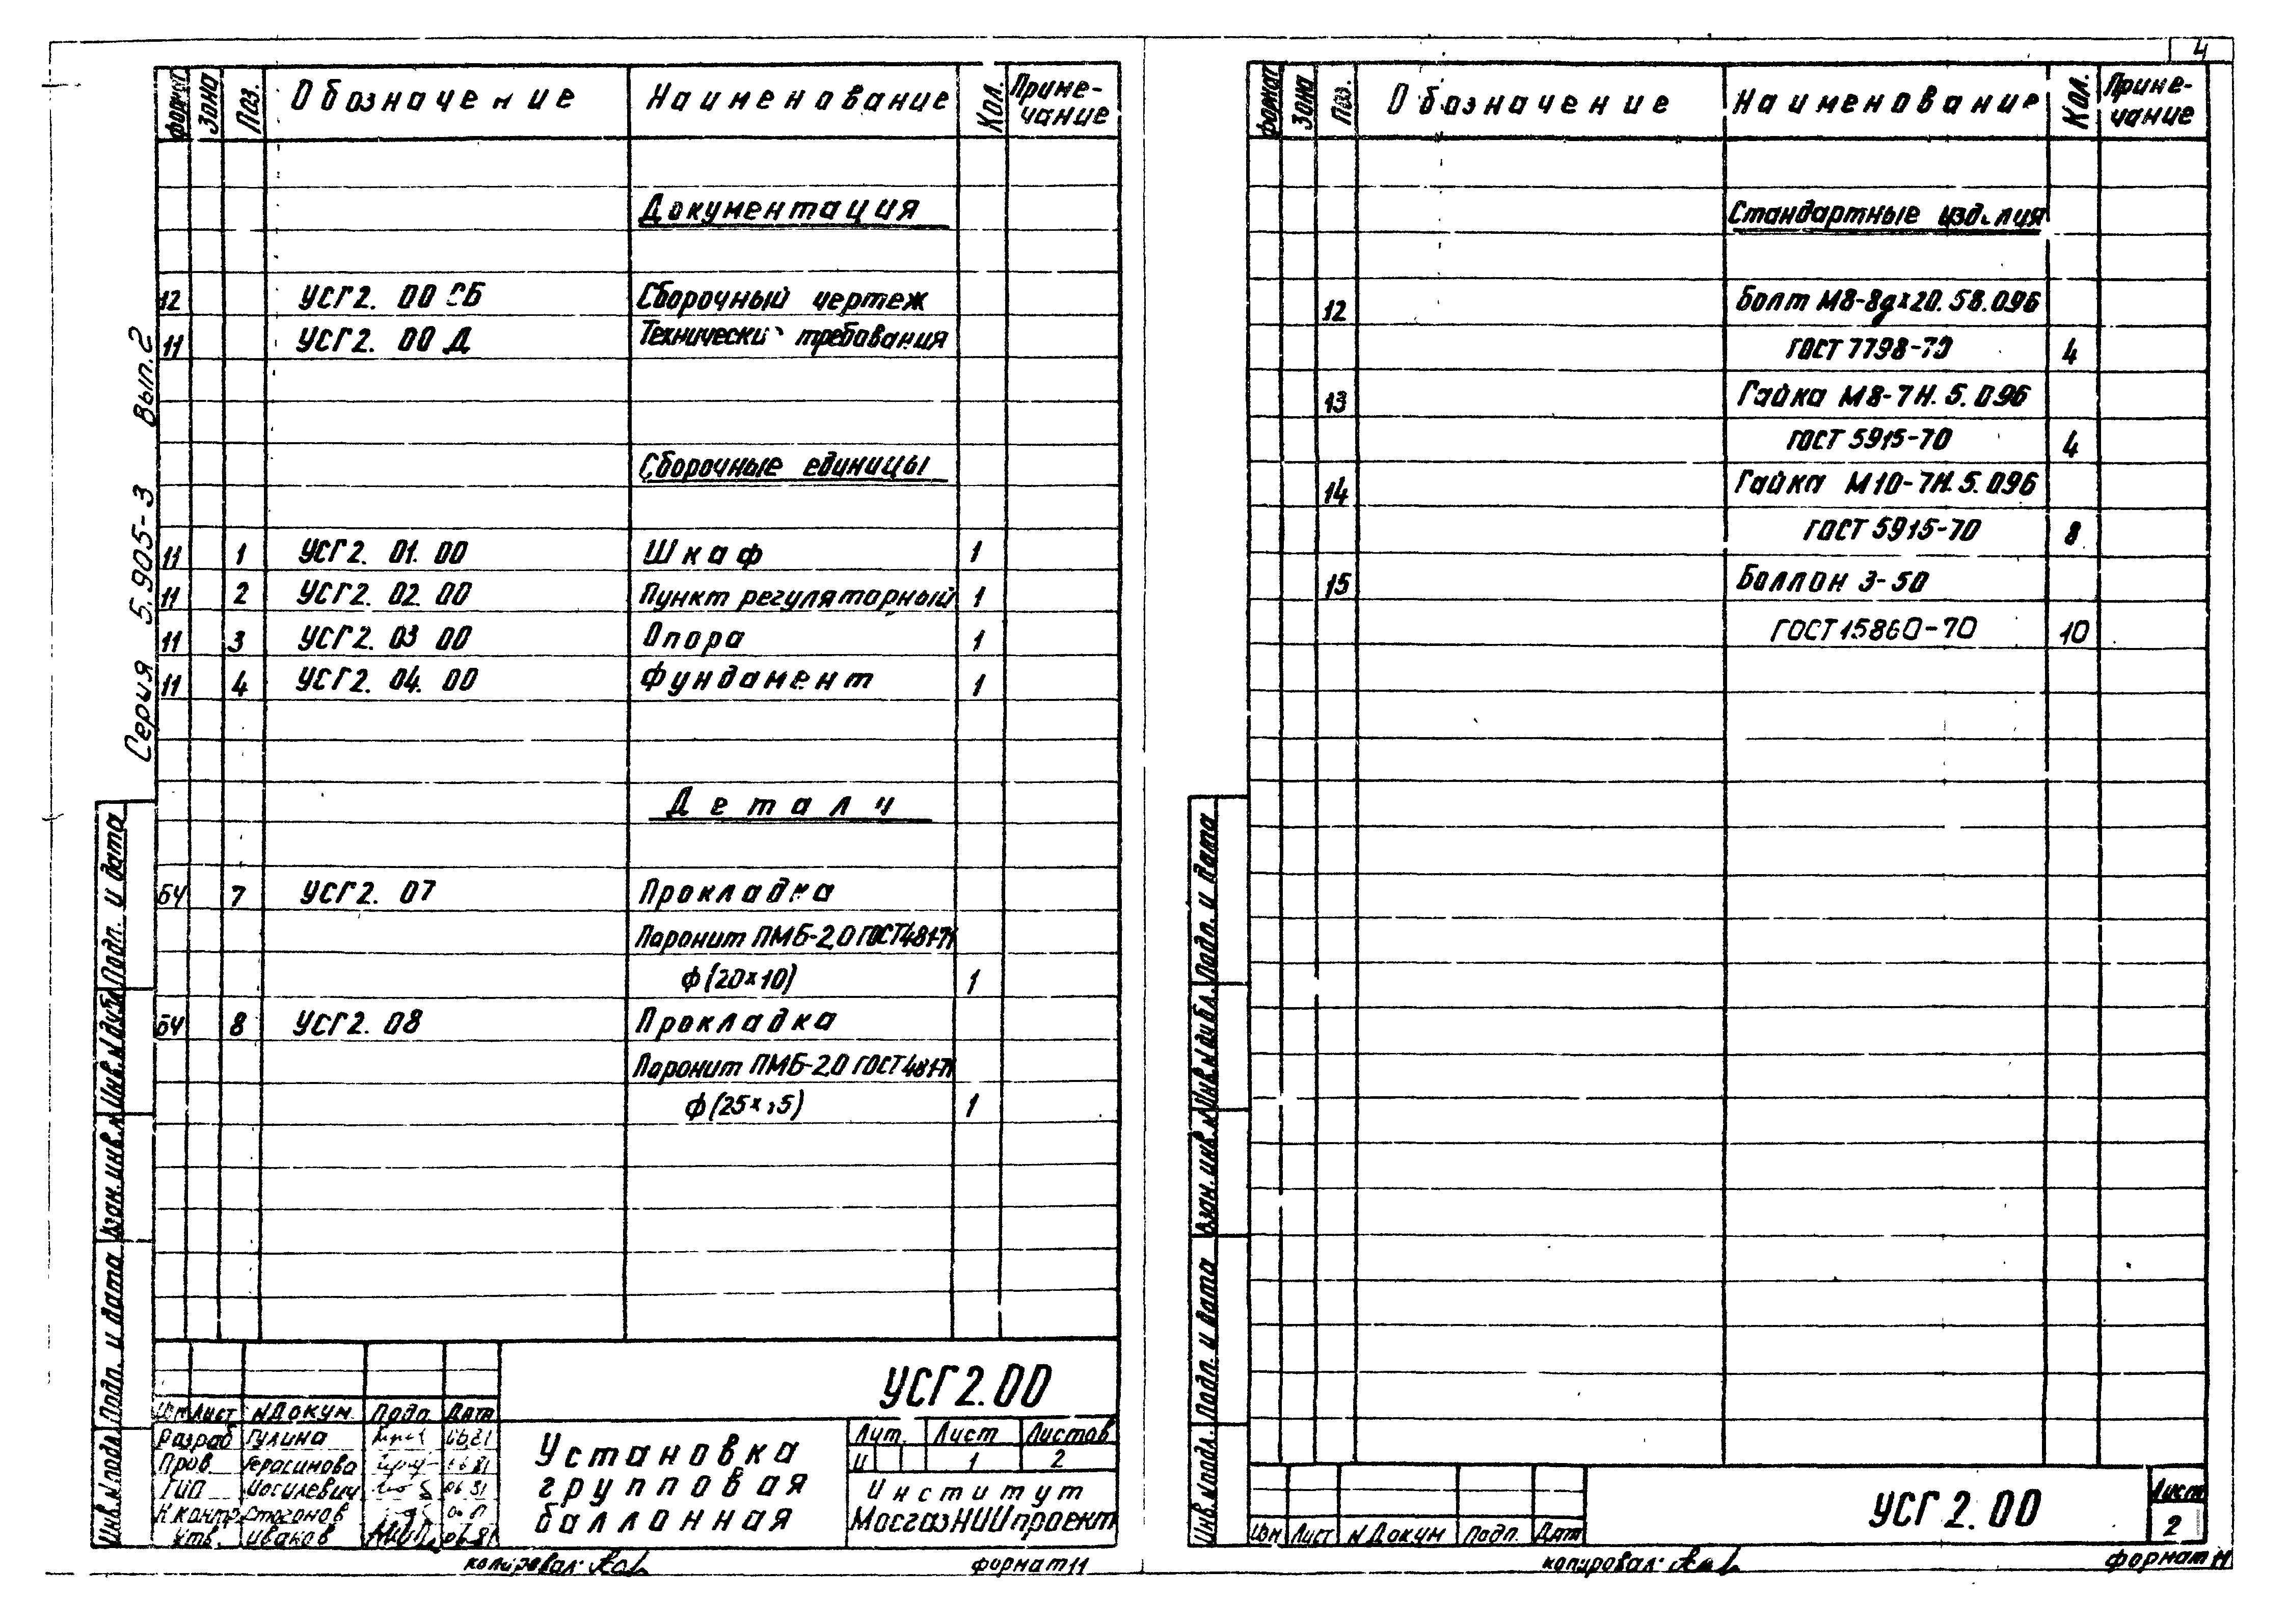 4
Серия 5.905-3 Вып.2
формат Зона Поз. Обозначение Наименование Кол. Приме-
чание
Документация
12 УСГ2. 00 СБ Сборочный чертеж
11 УСГ2. 00 Д Технически требования
Сборочные единицы
11 1 УСГ2. 01. 00 Шкаф 1
11 2 УСГ2. 02. 00 Пункт регуляторный 1
11 3 УСГ2. 03 00 Опора 1
11 4 УСГ2. 04. 00 Фундамент 1
Детали
БЧ 7 УСГ2. 07 Прокладка
Паронит ПМБ-2,0 ГОСТ 481-71
ф(20×10) 1
БЧ 8 УСГ2. 08 Прокладка
Паронит ПМБ-2,0 ГОСТ 481-71
ф(25× 5) 1
Инв.N подл. Подп. и дата Взам. инв.N Инв.N дубл. Подп. и дата
УСГ2.00
Изм Лист N Докум. Подп. Дата
Разраб Гулина 06.81
Пров. Герасимова 06 81
ГИП Могилевич 06 81
Н.контр. Стогонов
Утв. Иванов 06.81
Установка
групповая
баллонная
Лит. Лист Листов
И 1 2
Институт
МосгазНИИпроект
копировал: формат 11
формат Зона Поз. Обозначение Наименование Кол. Приме-
чание
Стандартные изделия
12 Болт М8-8g×20.58.096
ГОСТ 7798-70 4
13 Гайка М8-7Н.5.096
ГОСТ 5915-70 4
14 Гайка М10-7Н.5.096
ГОСТ 5915-70 8
15 Баллон 3-50
ГОСТ 15860-70 10
Инв.N подл. Подп. и дата Взам. инв.N Инв.N дубл. Подп. и дата
Изм Лист N Докум Подп. Дата
УСГ 2.00
Лист
2
копировал: формат 11